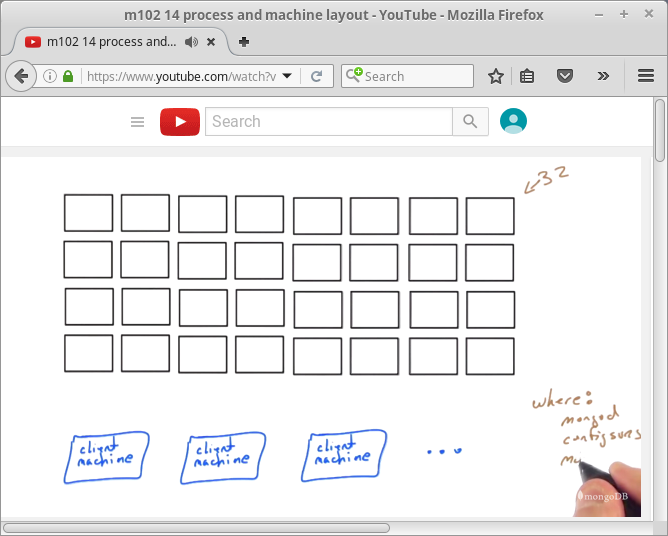 m102 14 process and machine layout - YouTube - Mozilla Firefox
m102 14 process and...
https://www.youtube.com/watch?v
Search
Search
32
where:
mongod
client machine
client machine
client machine
...
mongoDB